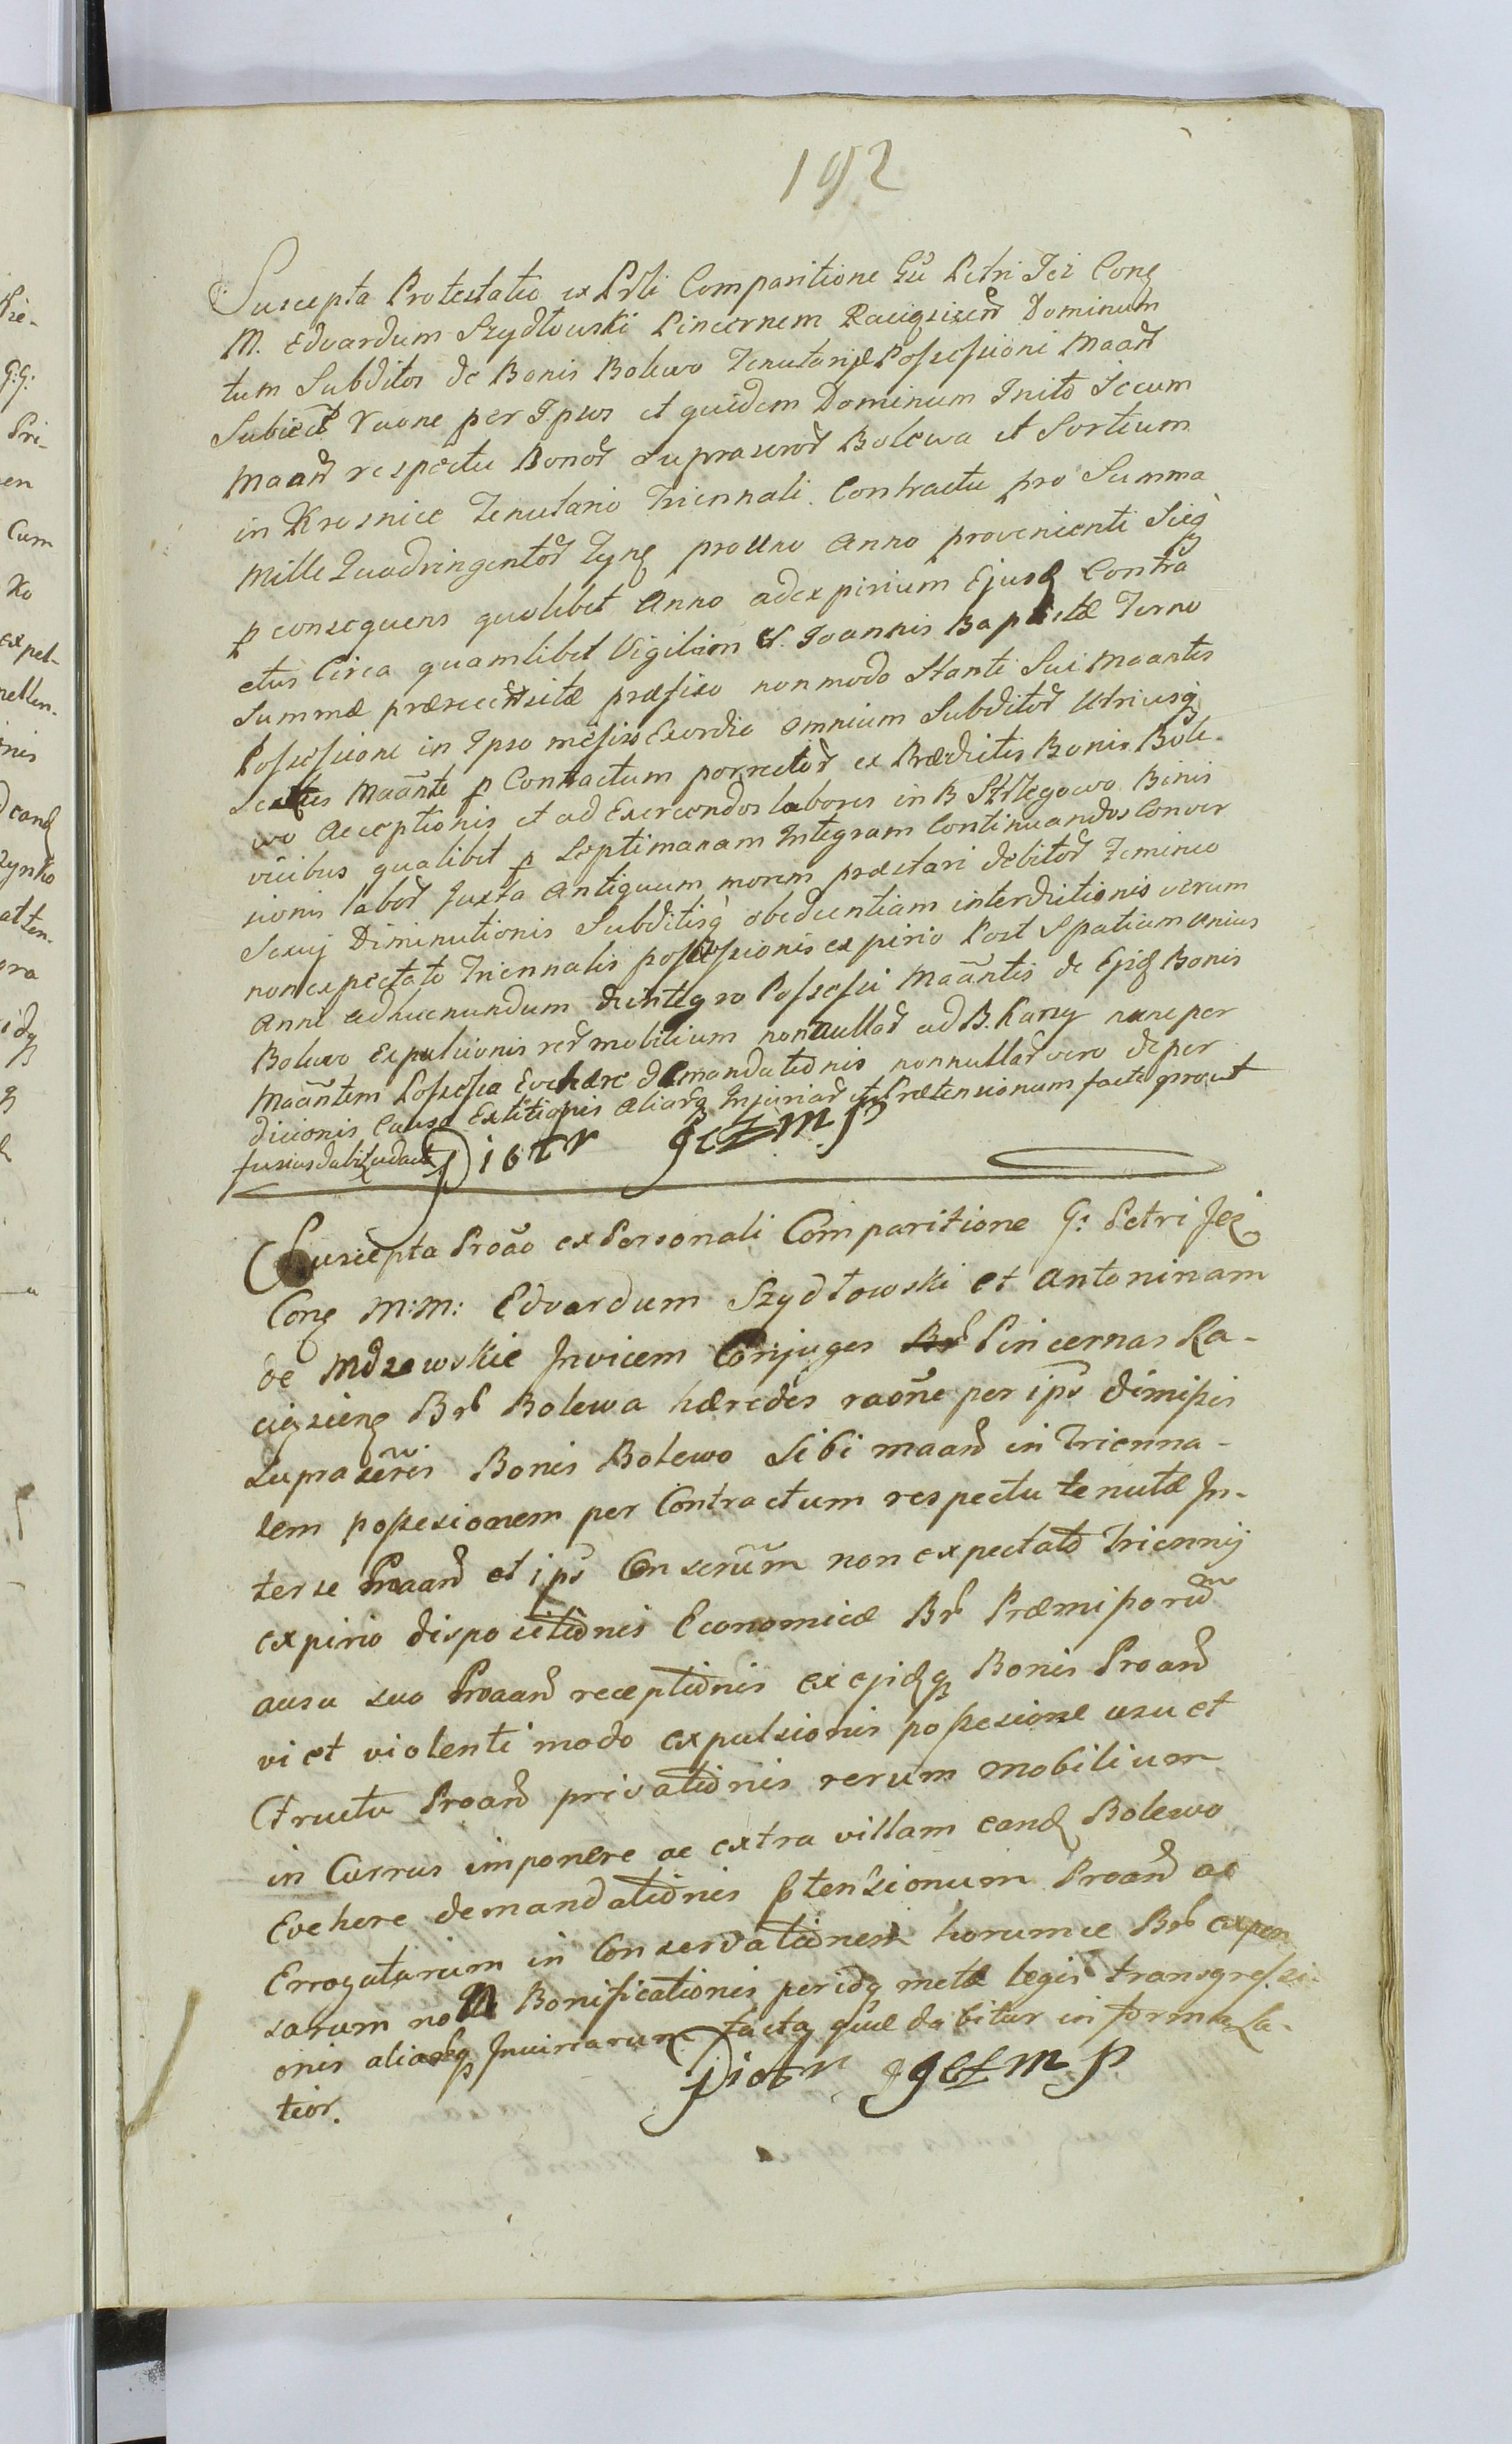 192
Suscepta Protestatio ex Prli Comparitione Gü Petri Jei Conq
M. Edvardum Szydłowski Pincernem Raciąsien Dominum
tum Subditos de Bonis Bolewo Tenutariæ Possessioni Maañ
Subiect Raone per Ipsos et quidem Dominum Inito Secum
Maañ respectu Bonor suprascror Bolewa et Sortium
in Krosnice Tenutario Triennali Contractu pro Summa
Mille Quadringentor Tynf pro uno Anno provenienti Sicq
p consequens quolibet Anno ad expirium Ejusd Contra
ctus Circa quamlibet Vigiliam S. Joannis Baptistæ Terno
Summæ præreccensitæ præfixo non modo Stante Sui Maantis
Possessione in Ipso messis Exordio omnium Subditor Utriusq
Sexus Maante p Contractum porrector ex Prædictis Bonis Bole-
wo Acceptionis et ad Exercendos labores in B Strzegowo Binis
vicibus qualibet p Septimanam Integram Continuandos Conver
sionis labor Juxta Antiquum morem præstari debitor Femineo
Sexuj Diminutionis Subditisq obedientiam interdictionis verum
non expectato Triennalis possessionis expirio Post Spatium unius
Anni adhuc nundum de integro Possessi Maantis de Ejsd Bonis
Bolewo Expulsionis rer mobilium nonnullar ad B. Kany nunc per
Maantem Possessa Evehere demandationis nonnullar vero deper
dicionis Causa Extitionis aliarq Injuriar et Prætensionum facta prout
fusius dabitur ad acta Piotr Jeż mp
Suscepta Proao ex Personali Comparitione G: Petri Jeż
Conq M:M: Edvardum Szydłowski et Antoninam
de Mdzewskie Invicem Conjuges Pincernas Ra-
ciązienq Br Bolewa hæredes raone per ips dimissis
supra scris Bonis Bolewo Sibi maañ in Trienna-
lem possesionem per Contractum respectu tenutæ In-
ter se Proaañ et ips Conscrum non expectato Triennij
expirio dispositionis Economicæ Br Præmissorum
ausu suo Proaañ receptionis ex ejsdq Bonis Proañ
vi et violenti modo expulsionis possesione usu et
Fructu Proañ privationis rerum mobilium
in Currus imponere ac extra villam eand Bolewo
Evehere demandationis ptensionum Proañ ac
Errogatarum in Conservationem horumce Br expen
sarum non Bonificationis peridq metæ legis transgressi-
onis aliarq Iniuriarum facta quæ dabitur in forma La-
tior. Piotr Jeż mp